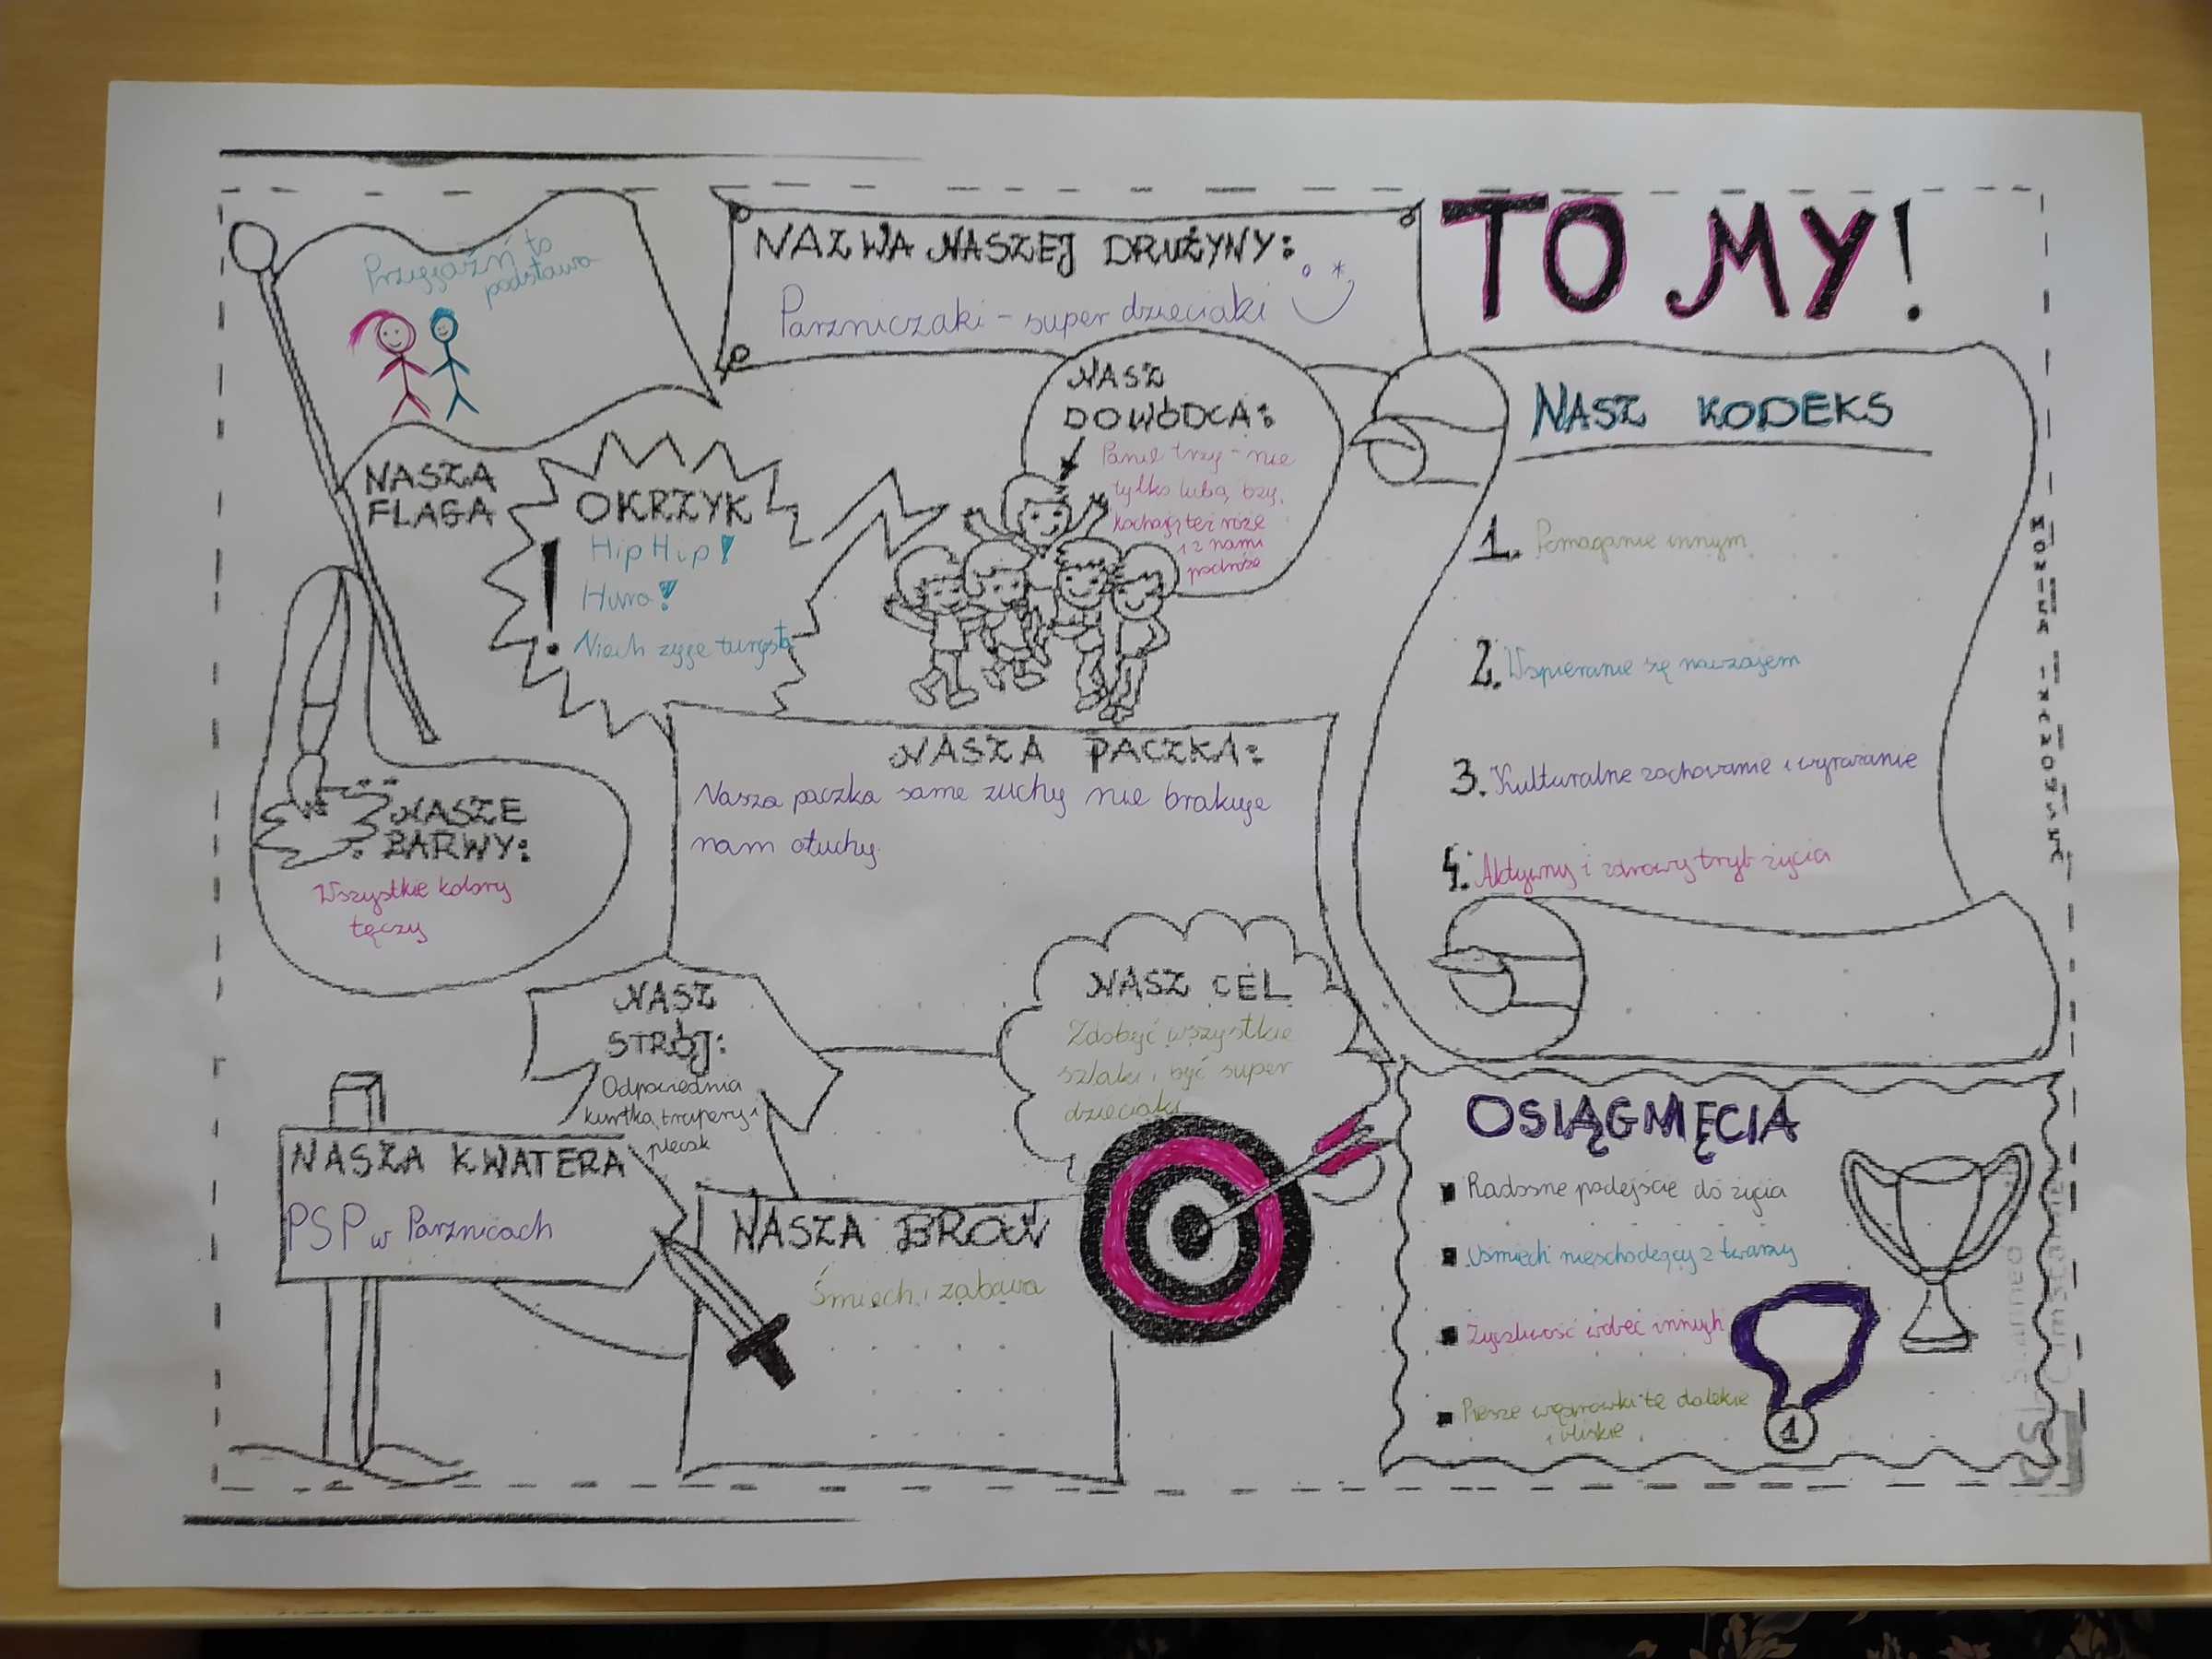 TO MY!
NAZWA NASZEJ DRUŻYNY:
Parzniczaki - super dzieciaki
Przyjaźń to
podstawa
NASZA
FLAGA
OKRZYK
Hip Hip!
Hura!
Niech żyje turysta
NASZ
DOWÓDCA:
Panie trzy - nie
tylko lubą bzy,
kochają też róże
i z nami
podróże
NASZ KODEKS
1. Pomaganie innym
2. Wspieranie się nawzajem
3. Kulturalne zachowanie i wyrażanie
4. Aktywny i zdrowy tryb życia
NASZA PACZKA:
Nasza paczka same zuchy nie brakuje
nam otuchy
NASZE
BARWY:
Wszystkie kolory
tęczy
NASZ
STRÓJ:
Odpowiednia
kurtka, trapery i
plecak
NASZ CEL
Zdobyć wszystkie
szlaki i być super
dzieciaki
NASZA KWATERA
PSP w Parznicach
NASZA BROŃ
Śmiech i zabawa
OSIĄGNIĘCIA
Radosne podejście do życia
Uśmiech nieschodzący z twarzy
Życzliwość wobec innych
Piesze wędrówki te dalekie
i bliskie
1